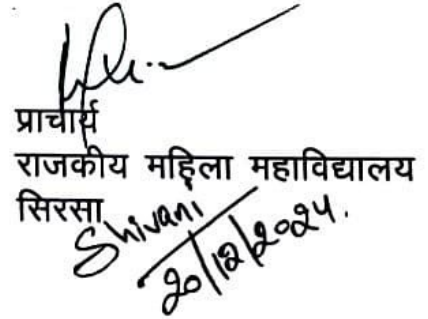 प्राचार्य
राजकीय महिला महाविद्यालय
सिरसा
Shivani
20/12/2024.